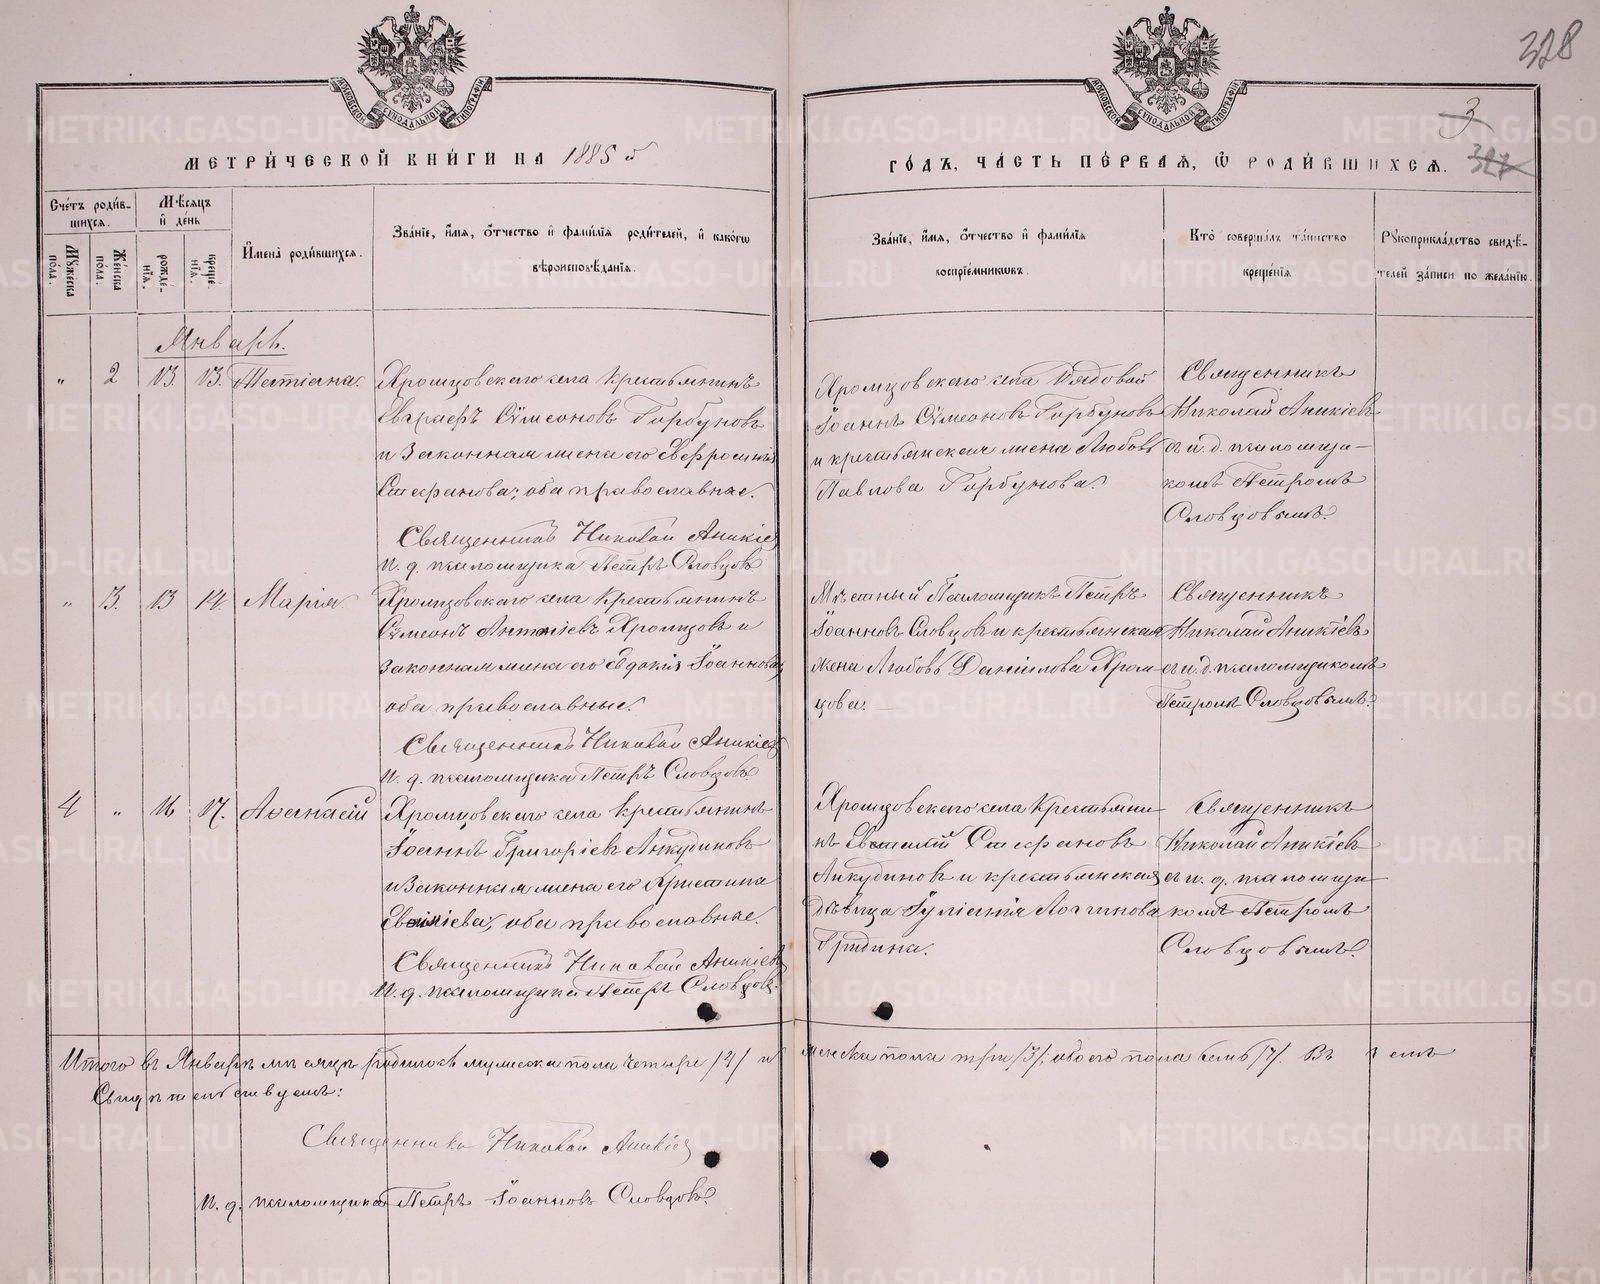 328
3
327
МОСКОВСКОЙ СѴНОДАЛЬНОЙ ТИПОГРАФІИ
МОСКОВСКОЙ СѴНОДАЛЬНОЙ ТИПОГРАФІИ
МЕТРИ́ЧЕСКОЙ КНИ́ГИ НА 1885 й
ГО́ДЪ, ЧА́СТЬ ПЕ́РВАЯ, Ѽ РОДИ́ВШИХСѦ.
Сче́тъ роди́в-
шихсѧ.
Мꙋ́жеска по́ла.
Же́нска по́ла.
Мѣ́сѧцъ
и҆ де́нь
рожде́-
нїѧ.
креще́-
нїѧ.
И҆мена̀ роди́вшихсѧ.
Зва́нїе, и҆́мѧ, ѻ҆́тчество и҆ фамилі́ѧ роди́телей, и҆ како́гѡ
вѣроисповѣ́данїѧ.
Зва́нїе, и҆́мѧ, ѻ҆́тчество и҆ фамилі́ѧ
воспрїе́мникѡвъ.
Кто̀ соверша́лъ та́инство
креще́нїѧ
Рꙋкоприкла́дство свидѣ́-
телей за́писи по жела́нїю.
Январь.
" 2 13. 13. Татіана.
Хромцовскаго села Крестьянинъ
Евграфъ Сѵмеоновъ Горбуновъ
и законная жена его Евфросинія
Стефанова; оба православные.
Священникъ Николай Аникіевъ
И. д. псаломщика Петръ Словцовъ
Хромцовскаго села Рядовой
Іоаннъ Сѵмеоновъ Горбуновъ
и крестьянская жена Любовь
Павлова Горбунова.
Священникъ
Николай Аникіевъ
съ и. д. псаломщи-
комъ Петромъ
Словцовымъ.
" 3. 13 14 Марія.
Хромцовскаго села Крестьянинъ
Сѵмеонъ Антоніевъ Хромцовъ и
законная жена его Евдокія Іоаннова
оба православные.
Священникъ Николай Аникіевъ
И. д. псаломщика Петръ Словцовъ
Мѣстный Псаломщикъ Петръ
Іоанновъ Словцовъ и крестьянская
жена Любовь Даніилова Хром-
цова.
Священникъ
Николай Аникіевъ
съ и. д. псаломщикомъ
Петромъ Словцовымъ.
4 " 16 17. Аѳанасій
Хромцовскаго села Крестьянинъ
Іоаннъ Григоріевъ Анкудиновъ
и законная жена его Христина
оба православные.
Священникъ Николай Аникіевъ
И. д. псаломщика Петръ Словцовъ.
Хромцовскаго села Крестьяни-
нъ Стефановъ
Анкудиновъ и крестьянская
дѣвица Іуліанія Логинова
Гридина.
Священникъ
Николай Аникіевъ
съ и. д. псаломщи-
комъ Петромъ
Словцовымъ.
Итого въ Январѣ мѣсяцѣ родилось мужеска пола четыре /4/ и женска пола три /3/; обоего пола семь /7/. Въ чемъ
Свидѣтельствуемъ:
Священникъ Николай Аникіевъ
И. д. псаломщика Петръ Іоанновъ Словцовъ.
METRIKI.GASO-URAL.RU